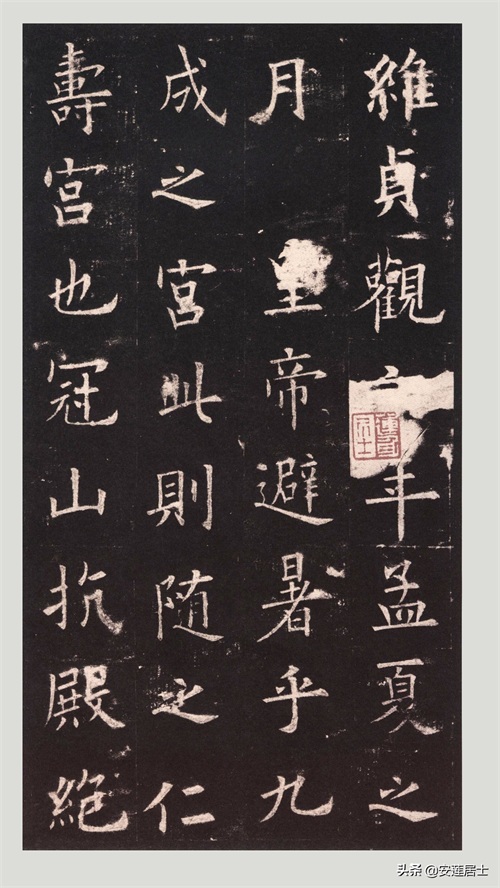 維貞觀六年孟夏之
月 皇帝避暑乎九
成之宮此則随之仁
壽宮也冠山抗殿絶
头条 @安蓮居士